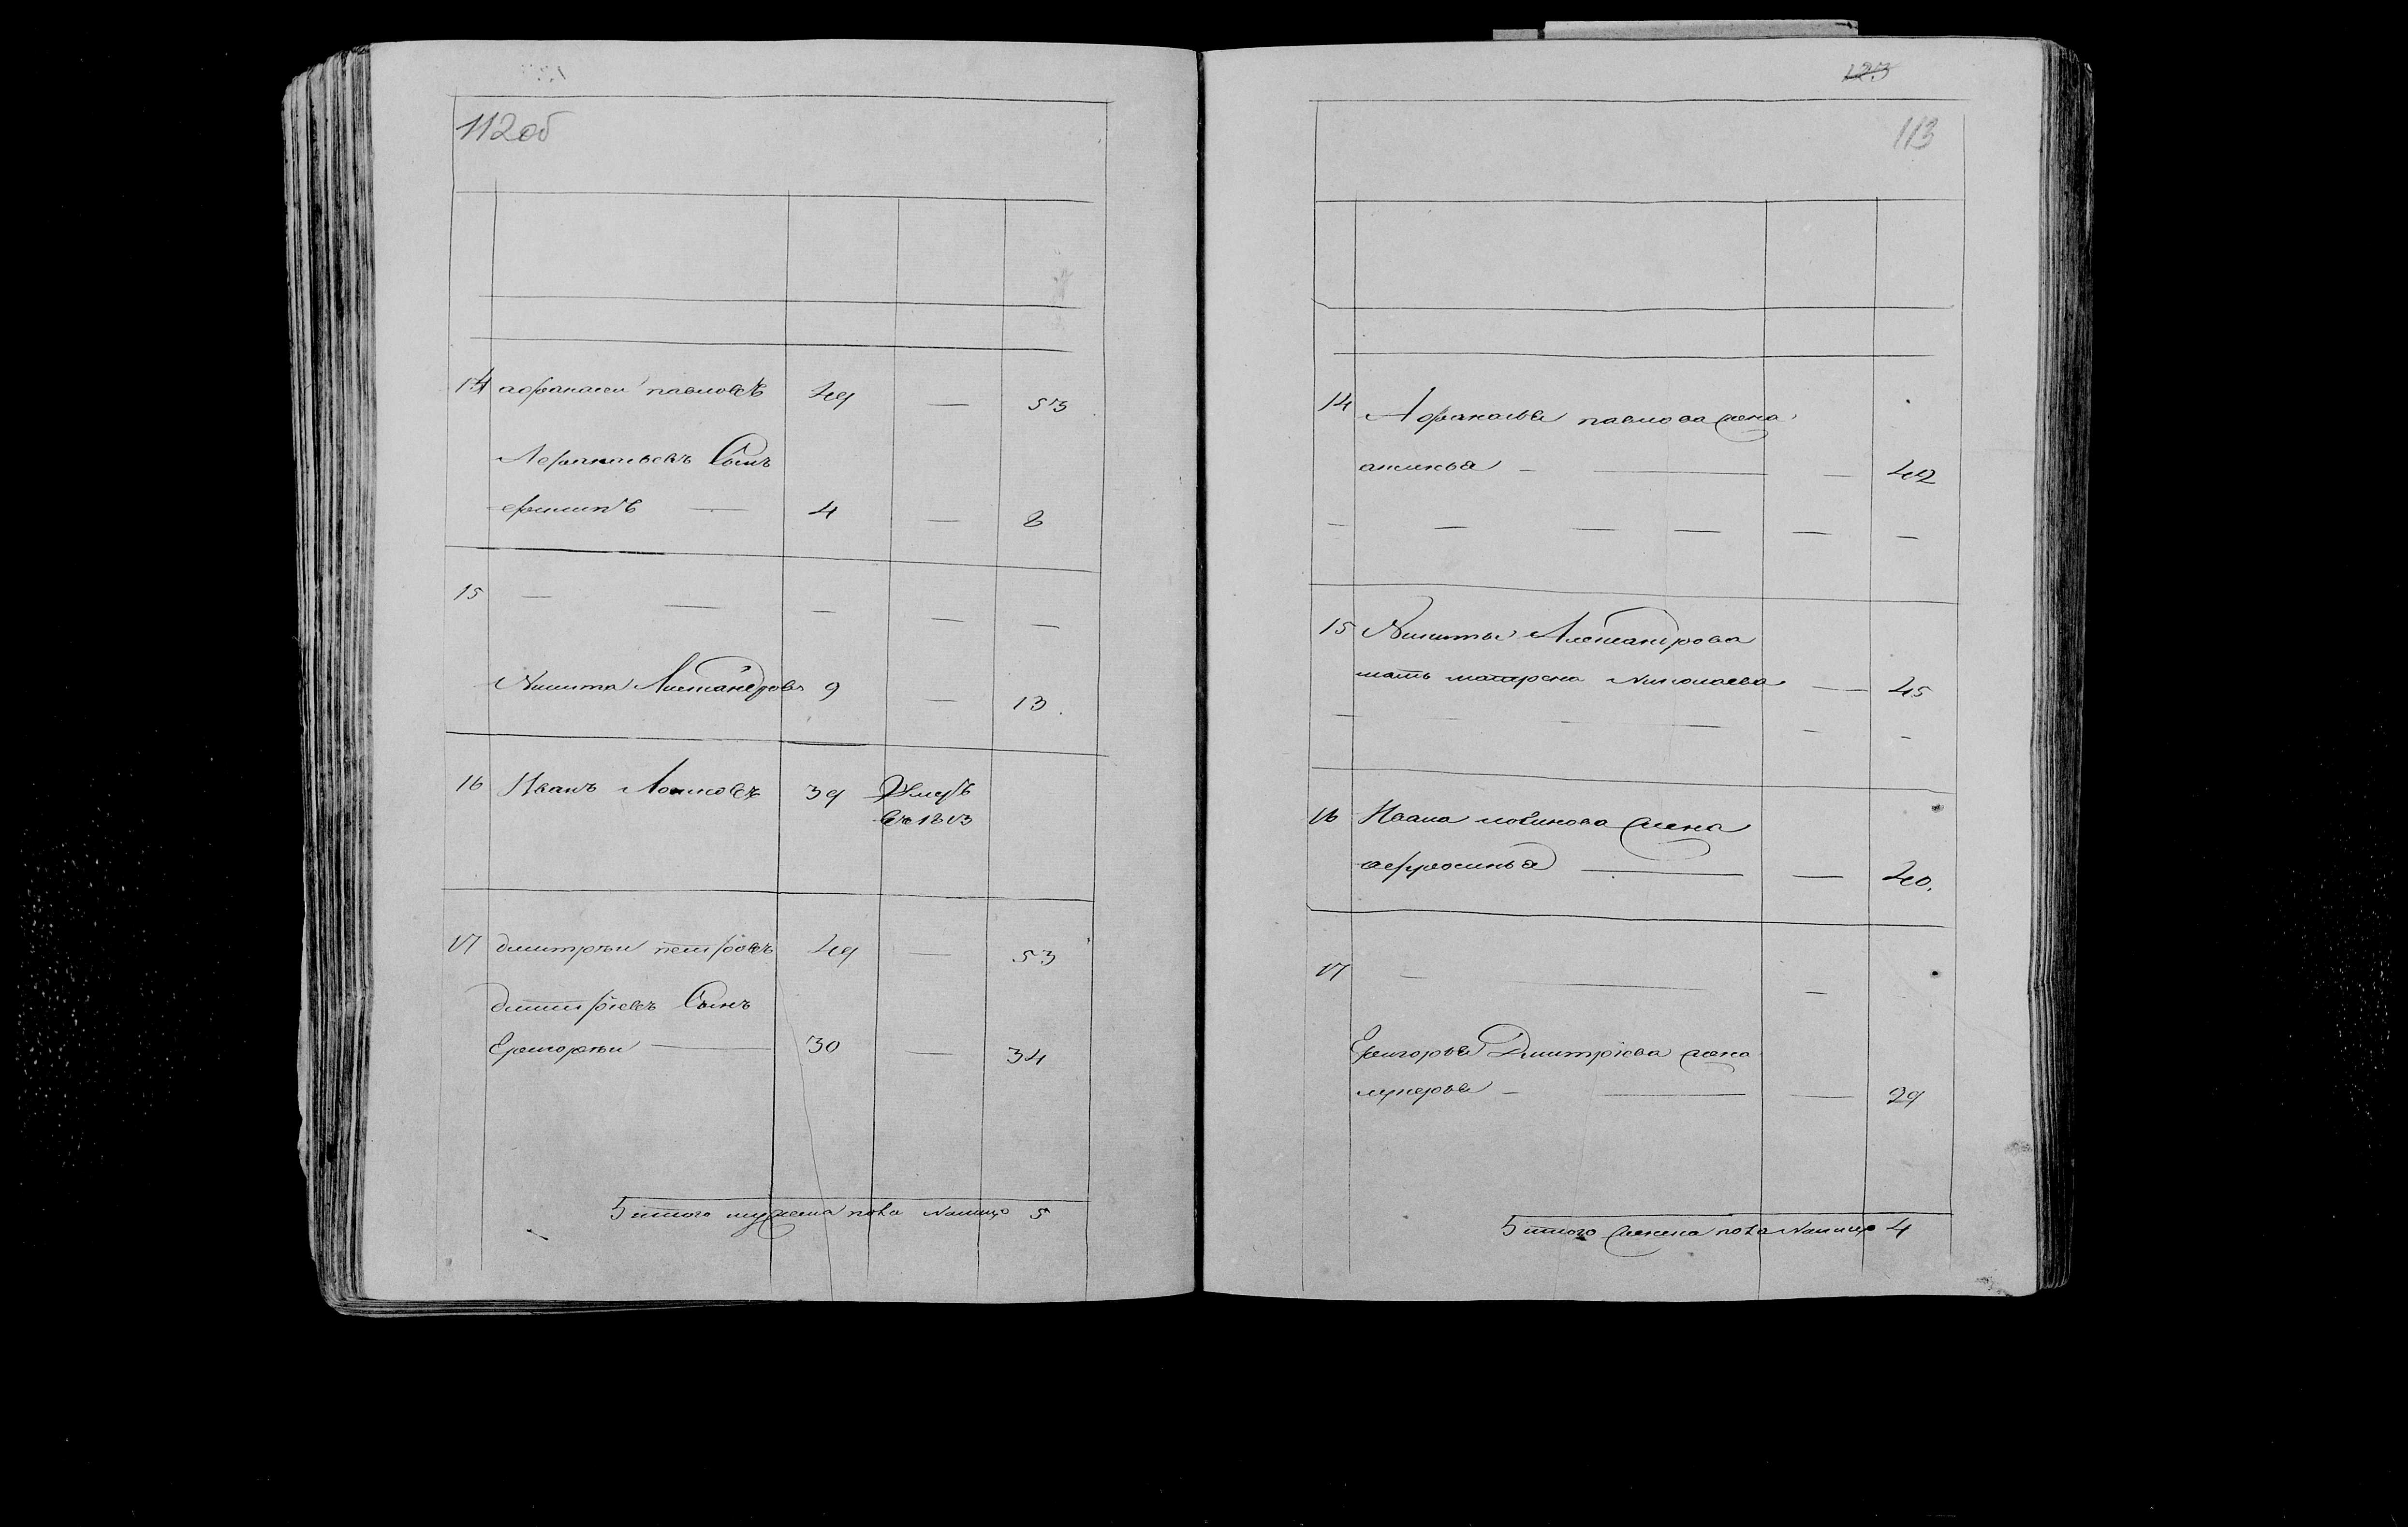 112об
14 афанасей павловъ 49 — 53
Афанасьевъ Сынъ
филипъ — 4 — 8
15 — — — — —
Никита Александровъ 9 — 13
16 Иванъ Логиновъ 39 Умеръ
въ 1813
17 дмитрѣи петровъ 49 — 53
дмитрiевъ Сынъ
Григорѣи — 30 — 34
итого мужеска пола налицо 5
123
113
14 Афанасья павлова жена
анисья — — — 42
— — — — — —
15 Никиты Александрова
мать матрена Николаева — 45
— — — — — —
16 Ивана логинова жена
афросинья — — 40
17 — — —
Григорья Дмитрiева жена
лукерья — — — 29
итого женска пола Налицо 4